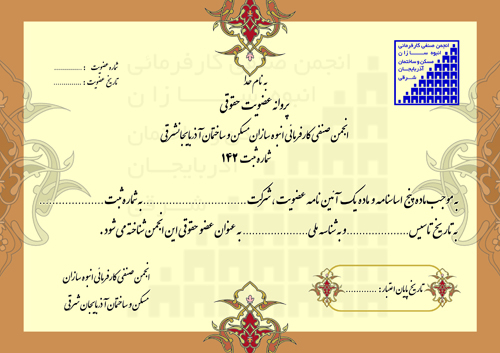 انجمن صنفی کارفرمائی
انبوه سازان
مسکن و ساختمان
آذربایجان
شرقی
شماره عضویت : ............
تاریخ عضویت : ............
به نام خدا
پروانه عضویت حقوقی
انجمن صنفی کارفرمائی انبوه سازان مسکن و ساختمان آذربایجانشرقی
شماره ثبت ۱۴۲
به موجب ماده پنج اساسنامه و ماده یک آئین نامه عضویت ، شرکت........................به شماره ثبت................
به تاریخ تاسیس................و به شناسه ملی................ به عنوان عضو حقوقی این انجمن شناخته می شود .
انجمن صنفی کارفرمائی انبوه سازان
مسکن و ساختمان آذربایجان شرقی
تاریخ پایان اعتبار : ............
انجمن صنفی کارفرمائی
انبوه سازان
مسکن و ساختمان
آذربایجان